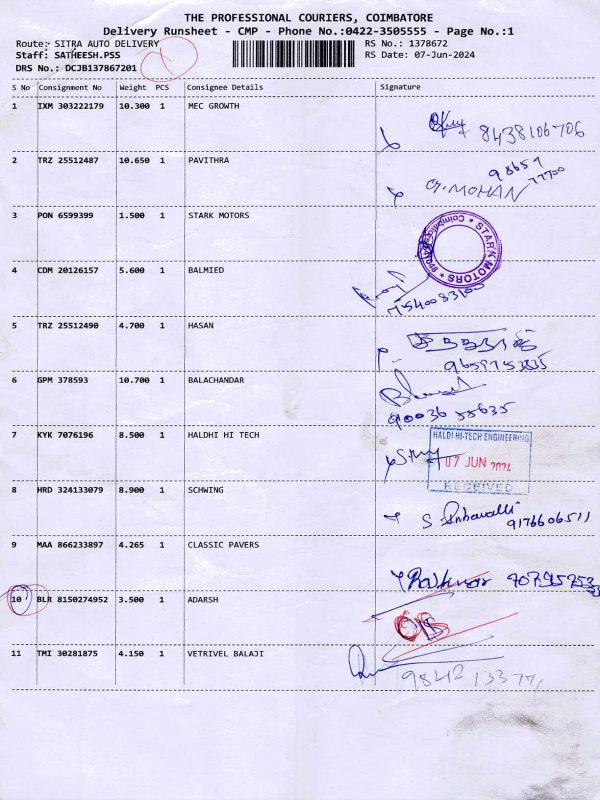 THE PROFESSIONAL COURIERS, COIMBATORE
Delivery Runsheet - CMP - Phone No.:0422-3505555 - Page No.:1
Route: SITRA AUTO DELIVERY RS No.: 1378672
Staff: SATHEESH.PSS RS Date: 07-Jun-2024
DRS No.: DCJB137867201
S No Consignment No Weight PCS Consignee Details Signature
1 IXM 303222179 10.300 1 MEC GROWTH
8438106706
2 TRZ 25512487 10.650 1 PAVITHRA
98659
77700
G. MOHAN
3 PON 6599399 1.500 1 STARK MOTORS
★ STARK MOTORS ★
4 CDM 20126157 5.600 1 BALMIED
7540083100
5 TRZ 25512490 4.700 1 HASAN
9659753835
6 GPM 378593 10.700 1 BALACHANDAR
7 KYK 7076196 8.500 1 HALDHI HI TECH
HALDI HI-TECH ENGINEERING
07 JUN 2024
RECEIVED
8 HRD 324133079 8.900 1 SCHWING
S 9176606511
9 MAA 866233897 4.265 1 CLASSIC PAVERS
10 BLR 8150274952 3.500 1 ADARSH
11 TMI 30281875 4.150 1 VETRIVEL BALAJI